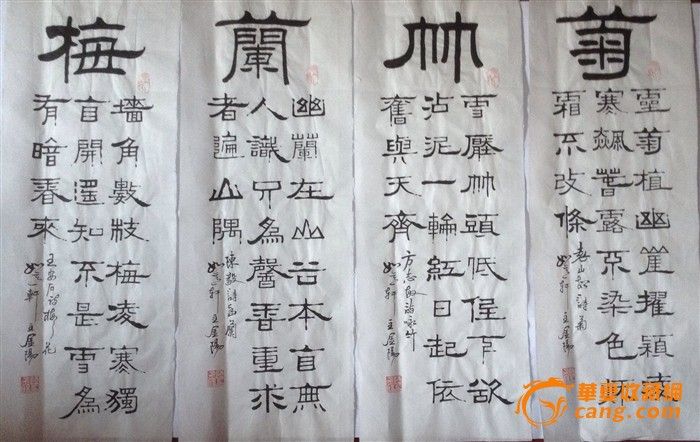 梅
墻角數枝梅凌寒獨
自開遥知不是雪為
有暗香來
王安石詩梅花
王金陽
蘭
幽蘭在山谷本自無
人識只為馨香重求
者遍山隅
陳毅詩幽蘭
王金陽
竹
雪壓竹頭低低下欲
沾泥一輪紅日起依
舊與天齊
方志敏詩詠竹
王金陽
菊
靈菊植幽崖擢穎凌
寒飆春露不染色秋
霜不改條
袁山松詩菊
王金陽
華夏收藏网
cang.com